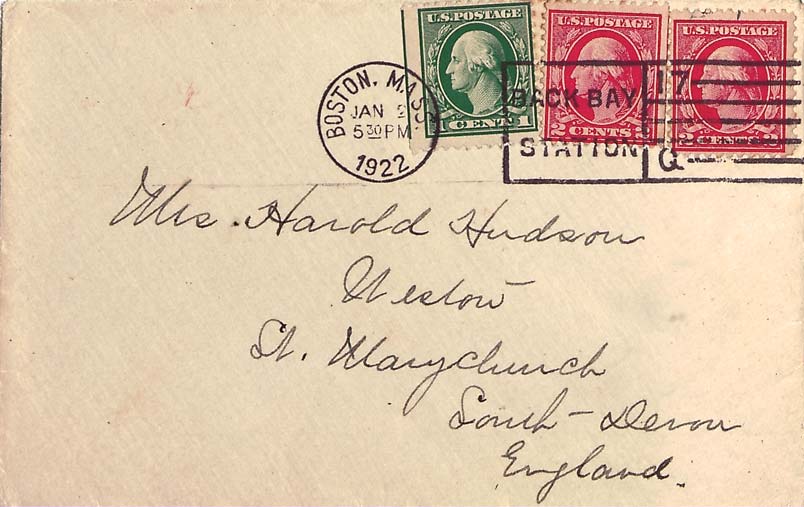 U.S.POSTAGE
1 CENTS 1
U.S.POSTAGE
2 CENTS 2
U.S.POSTAGE
2 CENTS 2
BOSTON, MASS
JAN 2
5 30 PM
1922
BACK BAY
STATION
17
Q
Mrs. Harold Hudson
Westow
St. Marychurch
South-Devon
England.